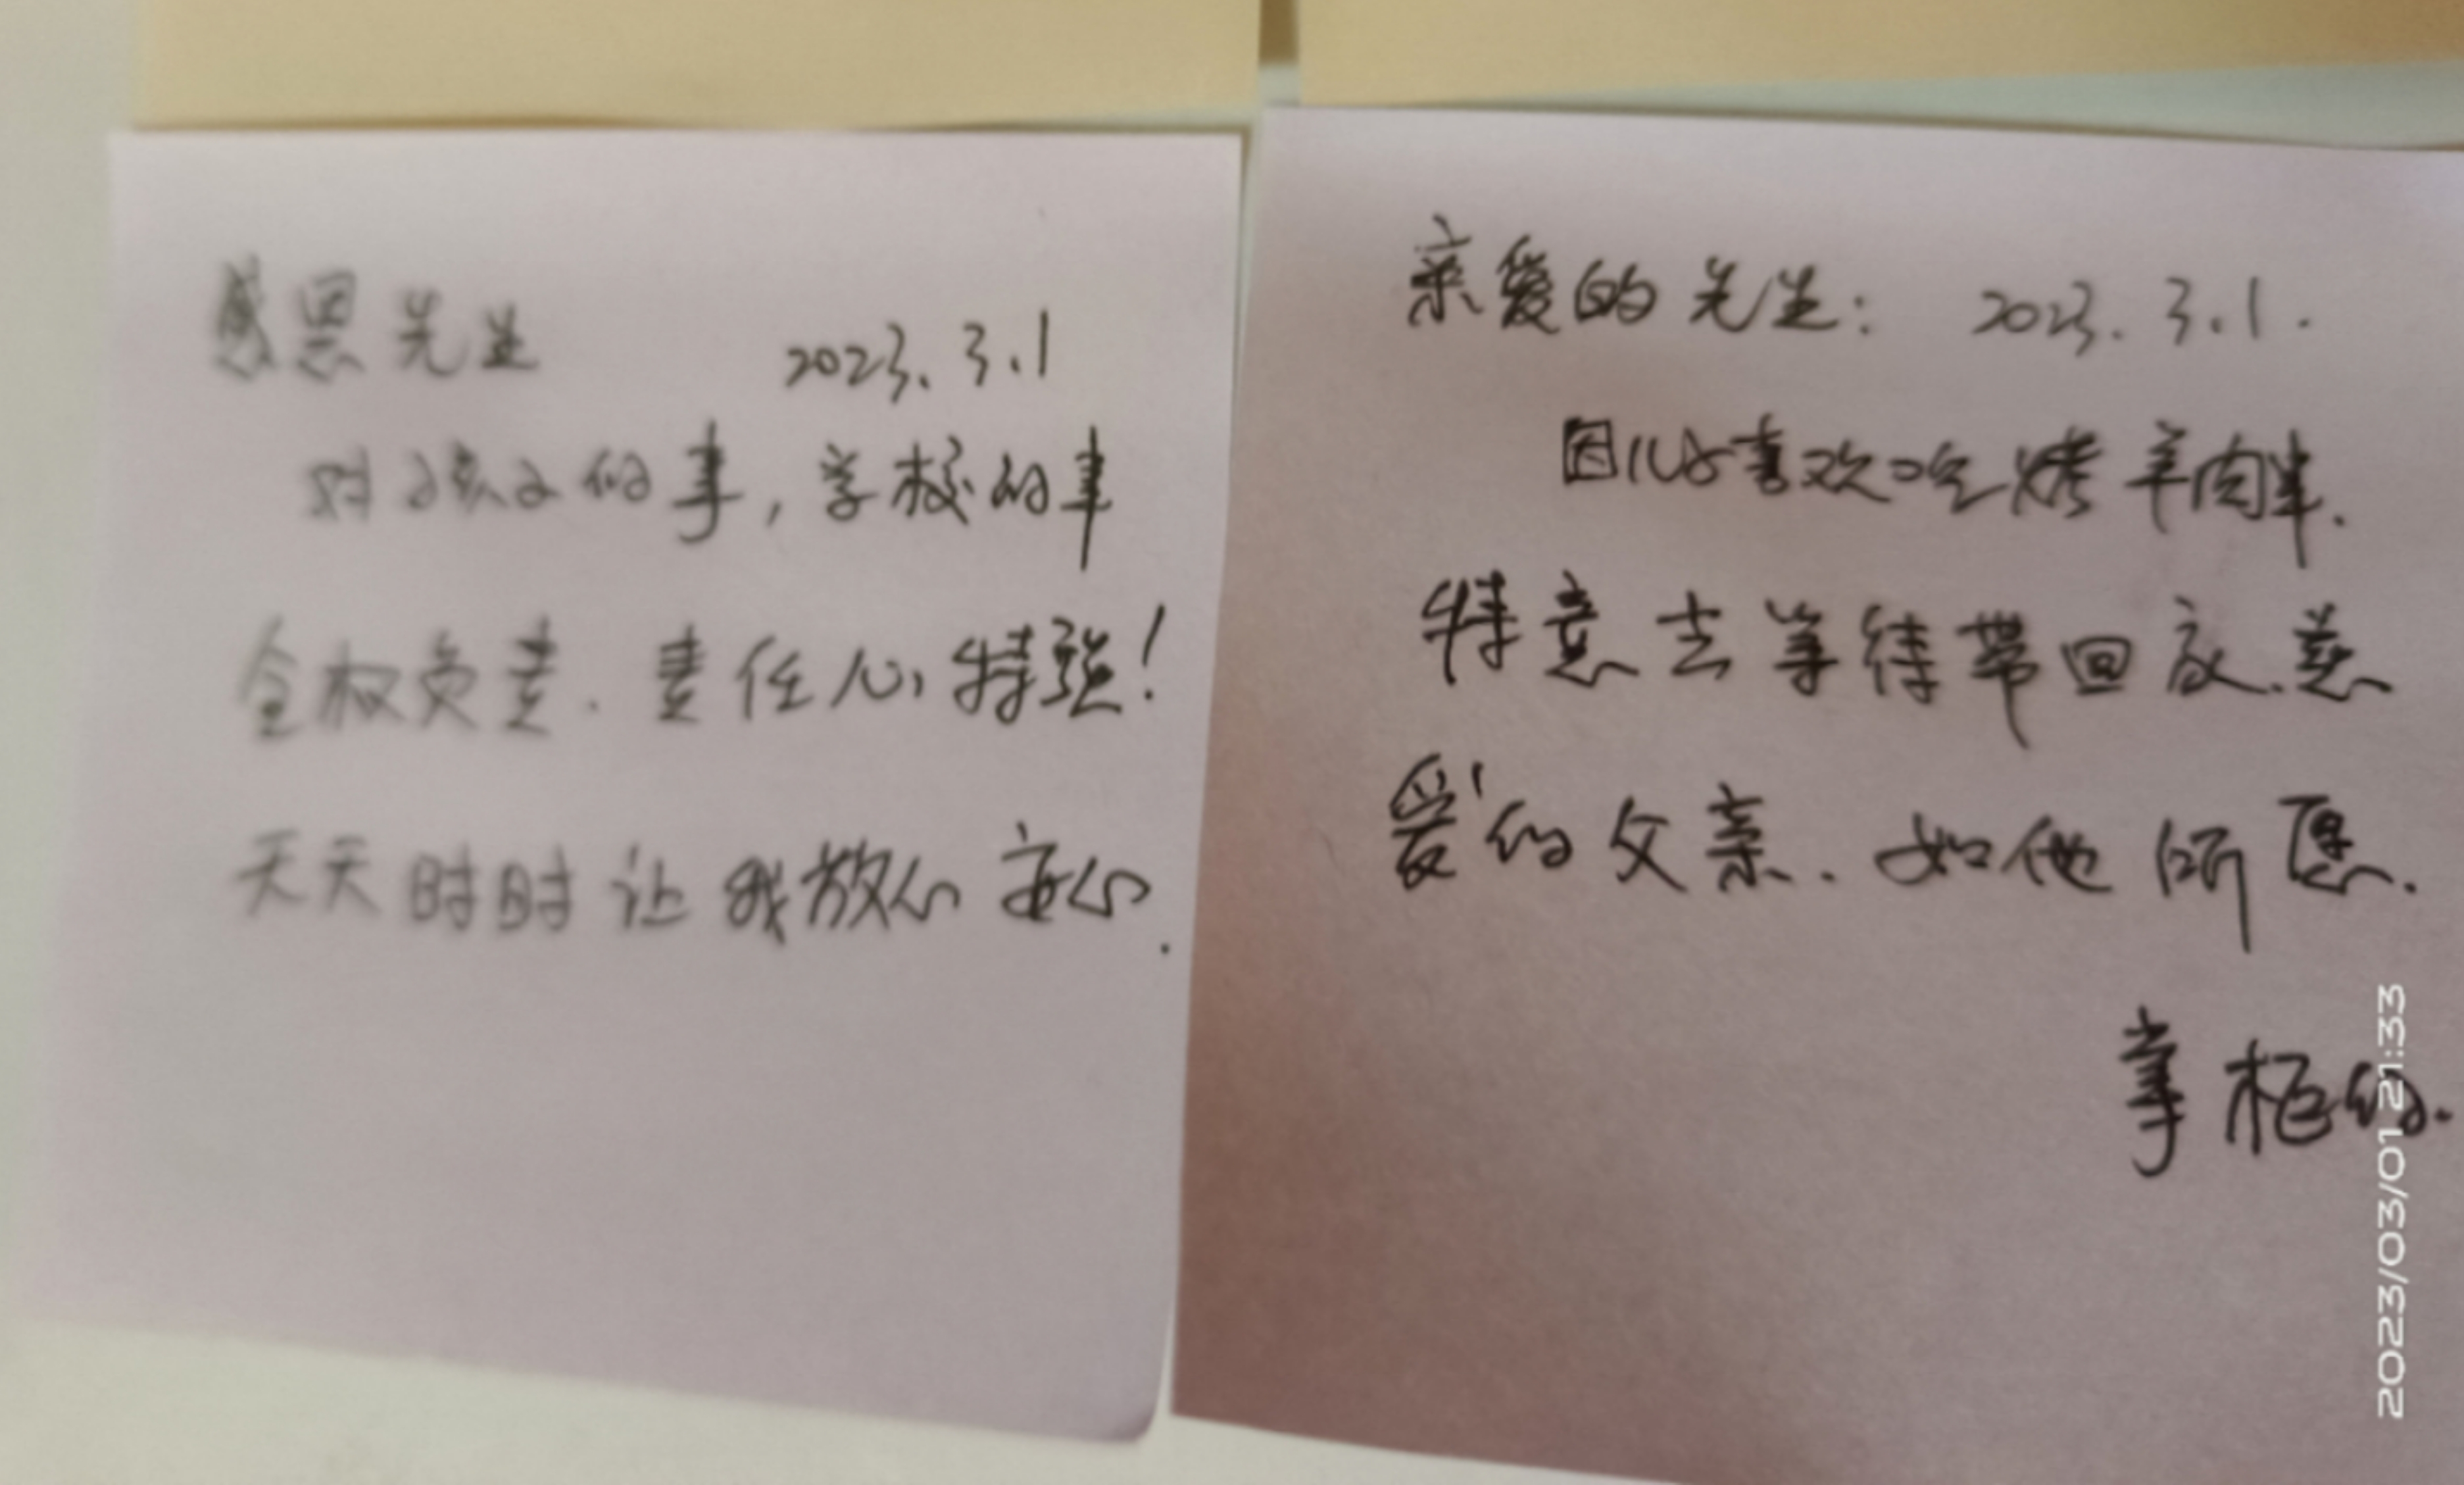 感恩先生 2023.3.1
对孩子的事,学校的事
全权负责.责任心特强!
天天时时让我放心安心.
亲爱的先生: 2023.3.1.
因儿子喜欢吃烤羊肉串.
特意去等待带回家.慈
爱的父亲.如他所愿.
掌柜的.
2023/03/01 21:33